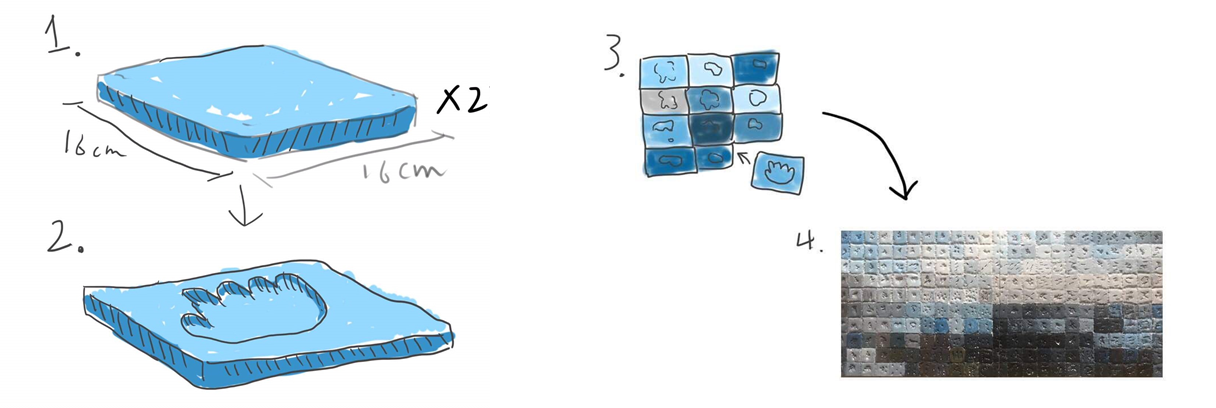 1.
X2
16cm
16cm
2.
3.
4.